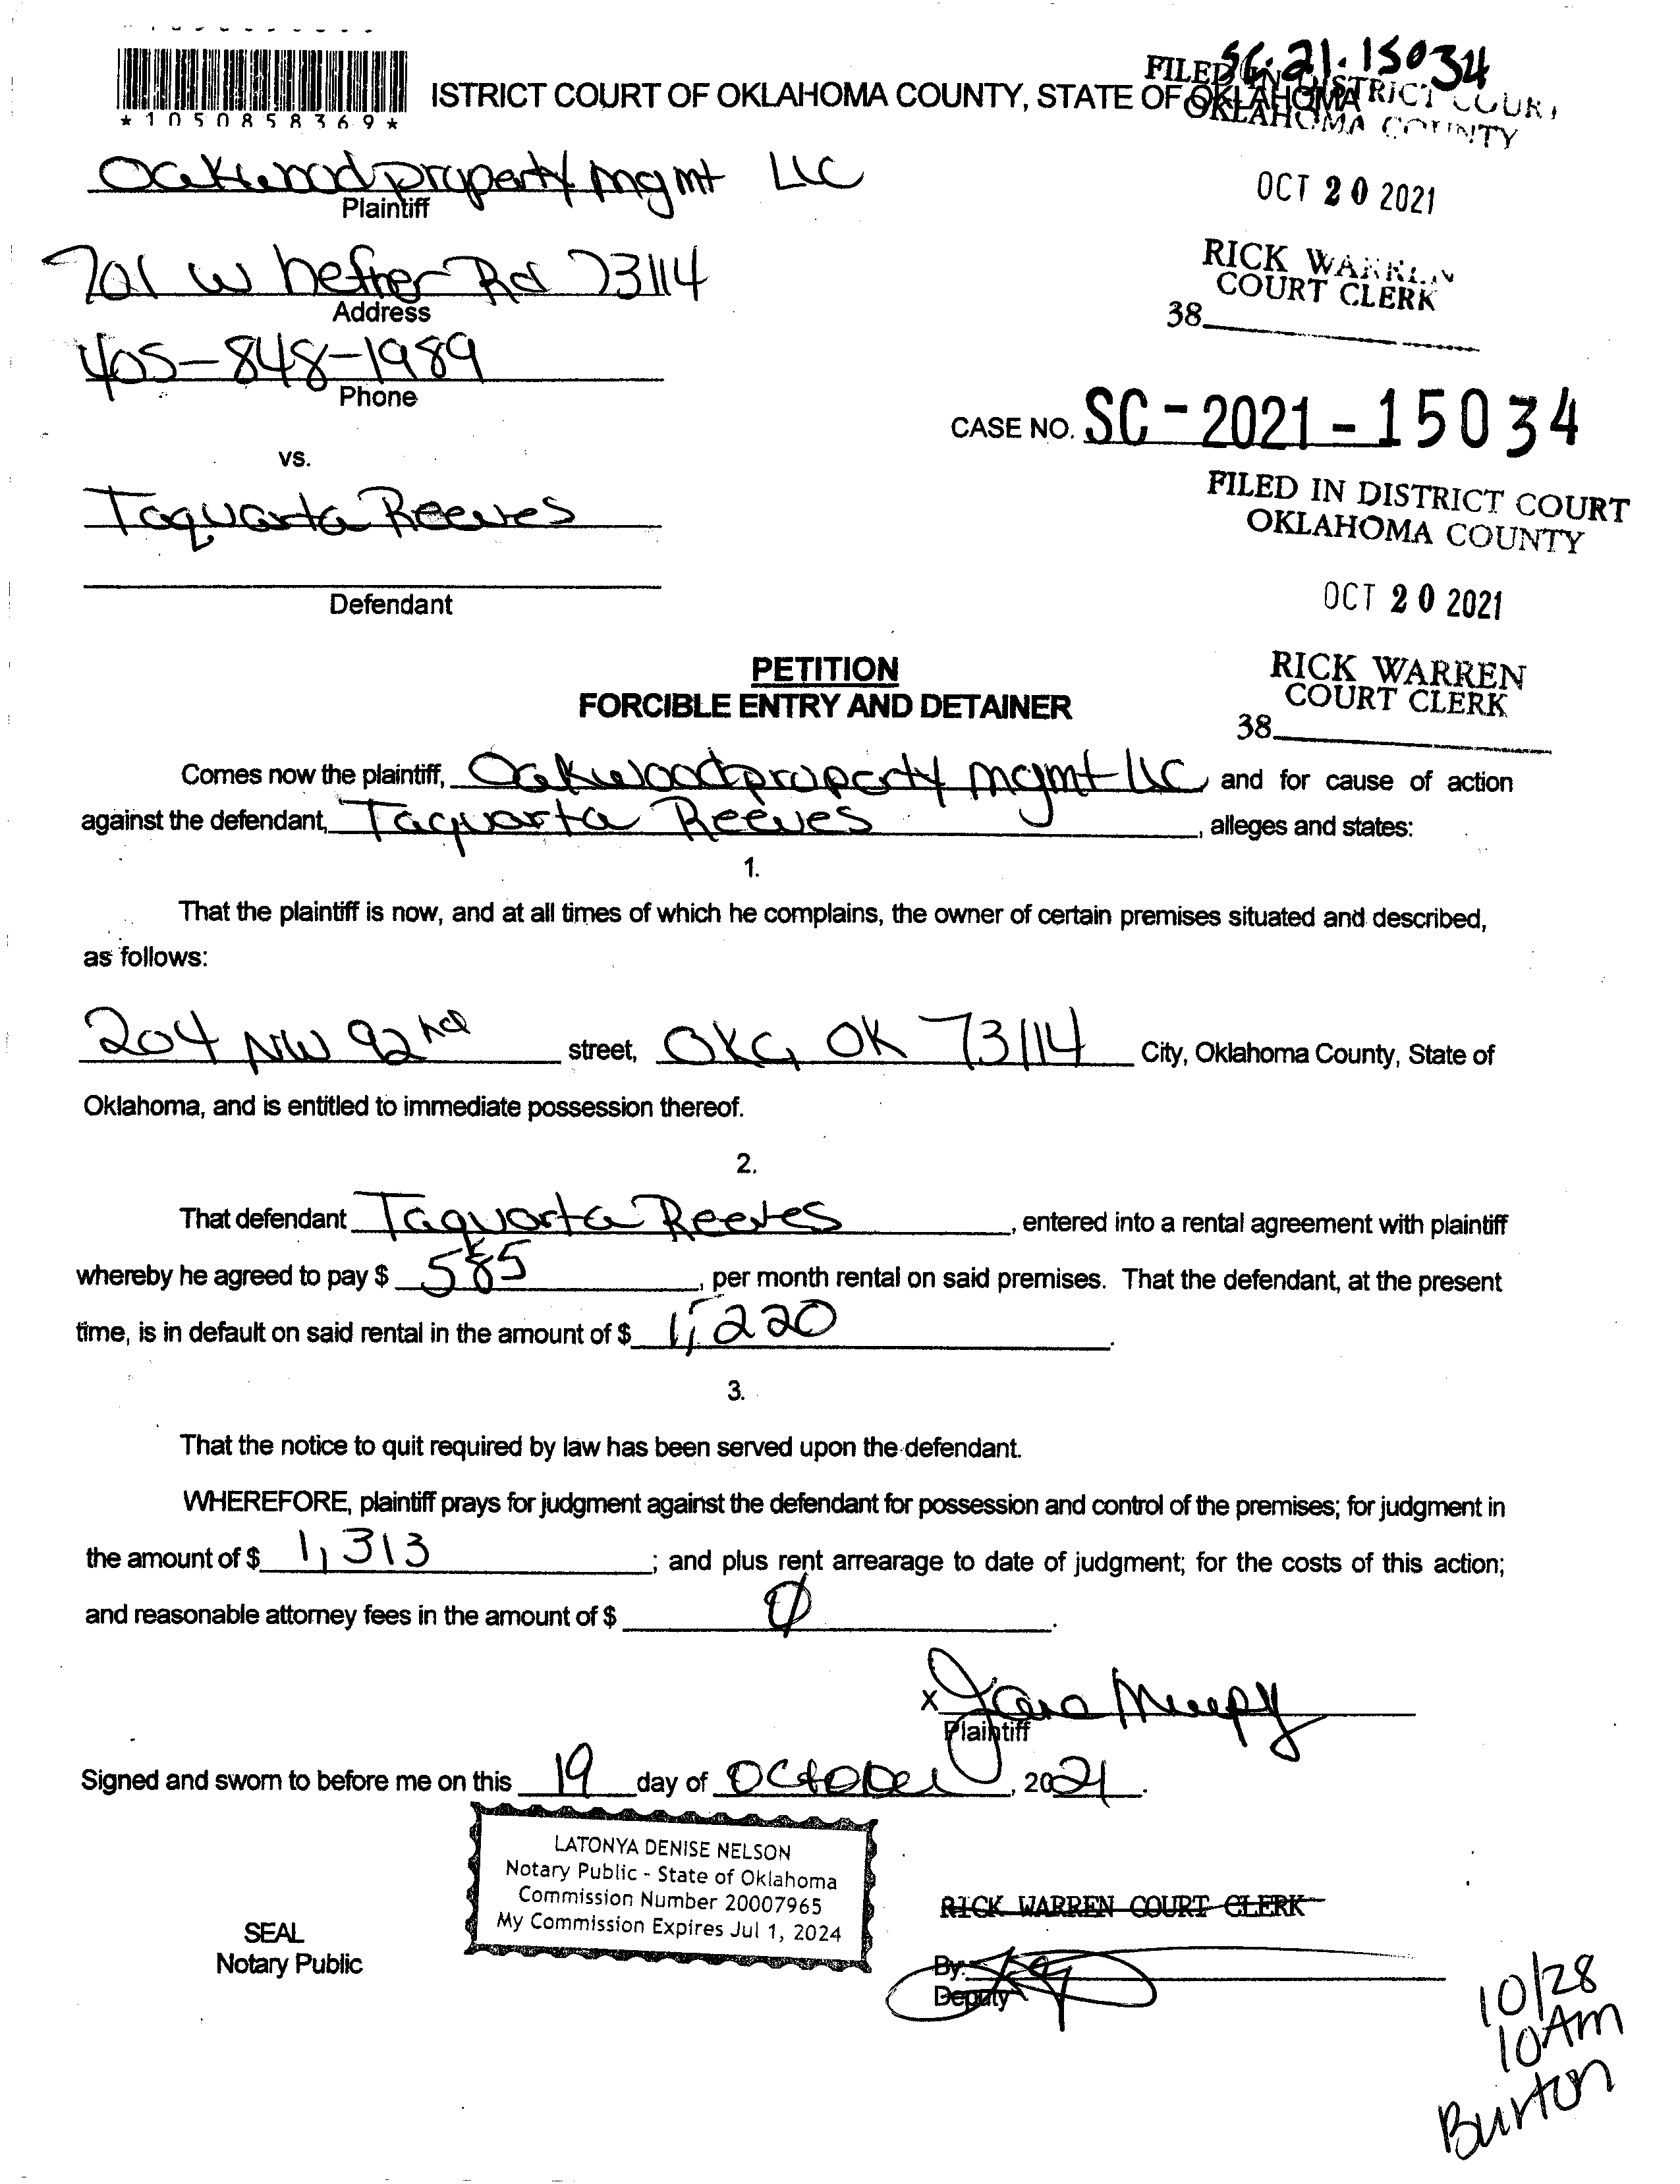 SC-21-15034
*1050858369*
ISTRICT COURT OF OKLAHOMA COUNTY, STATE OF OKLAHOMA
FILED IN DISTRICT COURT
OKLAHOMA COUNTY
Oakwood property mgmt LLC
Plaintiff
OCT 20 2021
701 W hefner Rd 73114
Address
RICK WARREN
COURT CLERK
38
405-848-1989
Phone
CASE NO. SC-2021-15034
vs.
Taquarta Reeves
FILED IN DISTRICT COURT
OKLAHOMA COUNTY
Defendant
OCT 20 2021
PETITION
FORCIBLE ENTRY AND DETAINER
RICK WARREN
COURT CLERK
38
Comes now the plaintiff, Oakwood property mgmt LLC and for cause of action
against the defendant, Taquarta Reeves, alleges and states:
1.
That the plaintiff is now, and at all times of which he complains, the owner of certain premises situated and described,
as follows:
204 NW 92nd street, OKC, OK 73114 City, Oklahoma County, State of
Oklahoma, and is entitled to immediate possession thereof.
2.
That defendant Taquarta Reeves, entered into a rental agreement with plaintiff
whereby he agreed to pay $ 585, per month rental on said premises. That the defendant, at the present
time, is in default on said rental in the amount of $ 1,220.
3.
That the notice to quit required by law has been served upon the defendant.
WHEREFORE, plaintiff prays for judgment against the defendant for possession and control of the premises; for judgment in
the amount of $ 1,313; and plus rent arrearage to date of judgment; for the costs of this action;
and reasonable attorney fees in the amount of $ 0.
x
Plaintiff
Signed and sworn to before me on this 19 day of October, 2021.
LATONYA DENISE NELSON
Notary Public - State of Oklahoma
Commission Number 20007965
My Commission Expires Jul 1, 2024
SEAL
Notary Public
RICK WARREN COURT CLERK
By:
Deputy
10/28
10Am
Burton